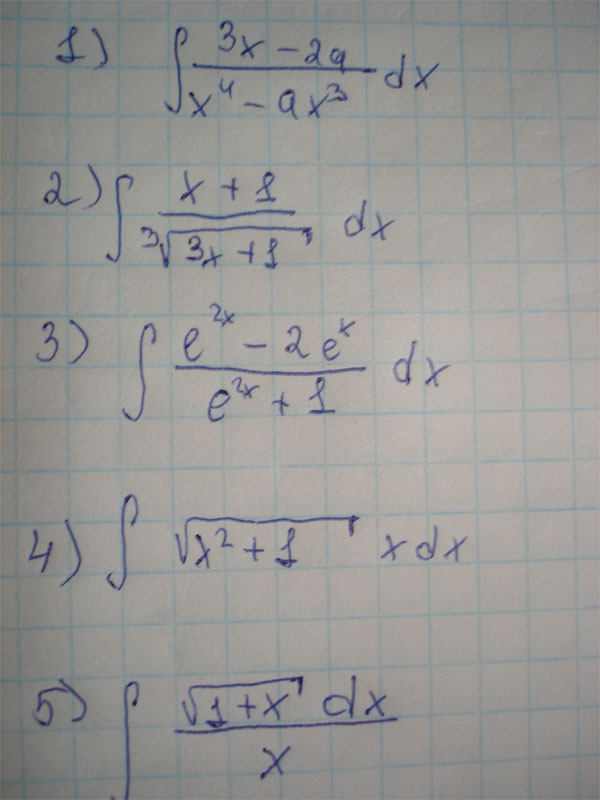 1) ∫ (3x - 2a)/(x⁴ - ax³) dx
2) ∫ (x + 1)/∛(3x + 1) dx
3) ∫ (e²ˣ - 2eˣ)/(e²ˣ + 1) dx
4) ∫ √(x² + 1) x dx
5) ∫ (√(1 + x) dx)/x